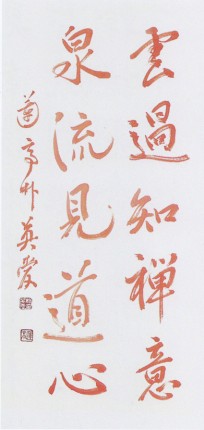 雲過知禪意
泉流見道心
蘭亭朴英愛